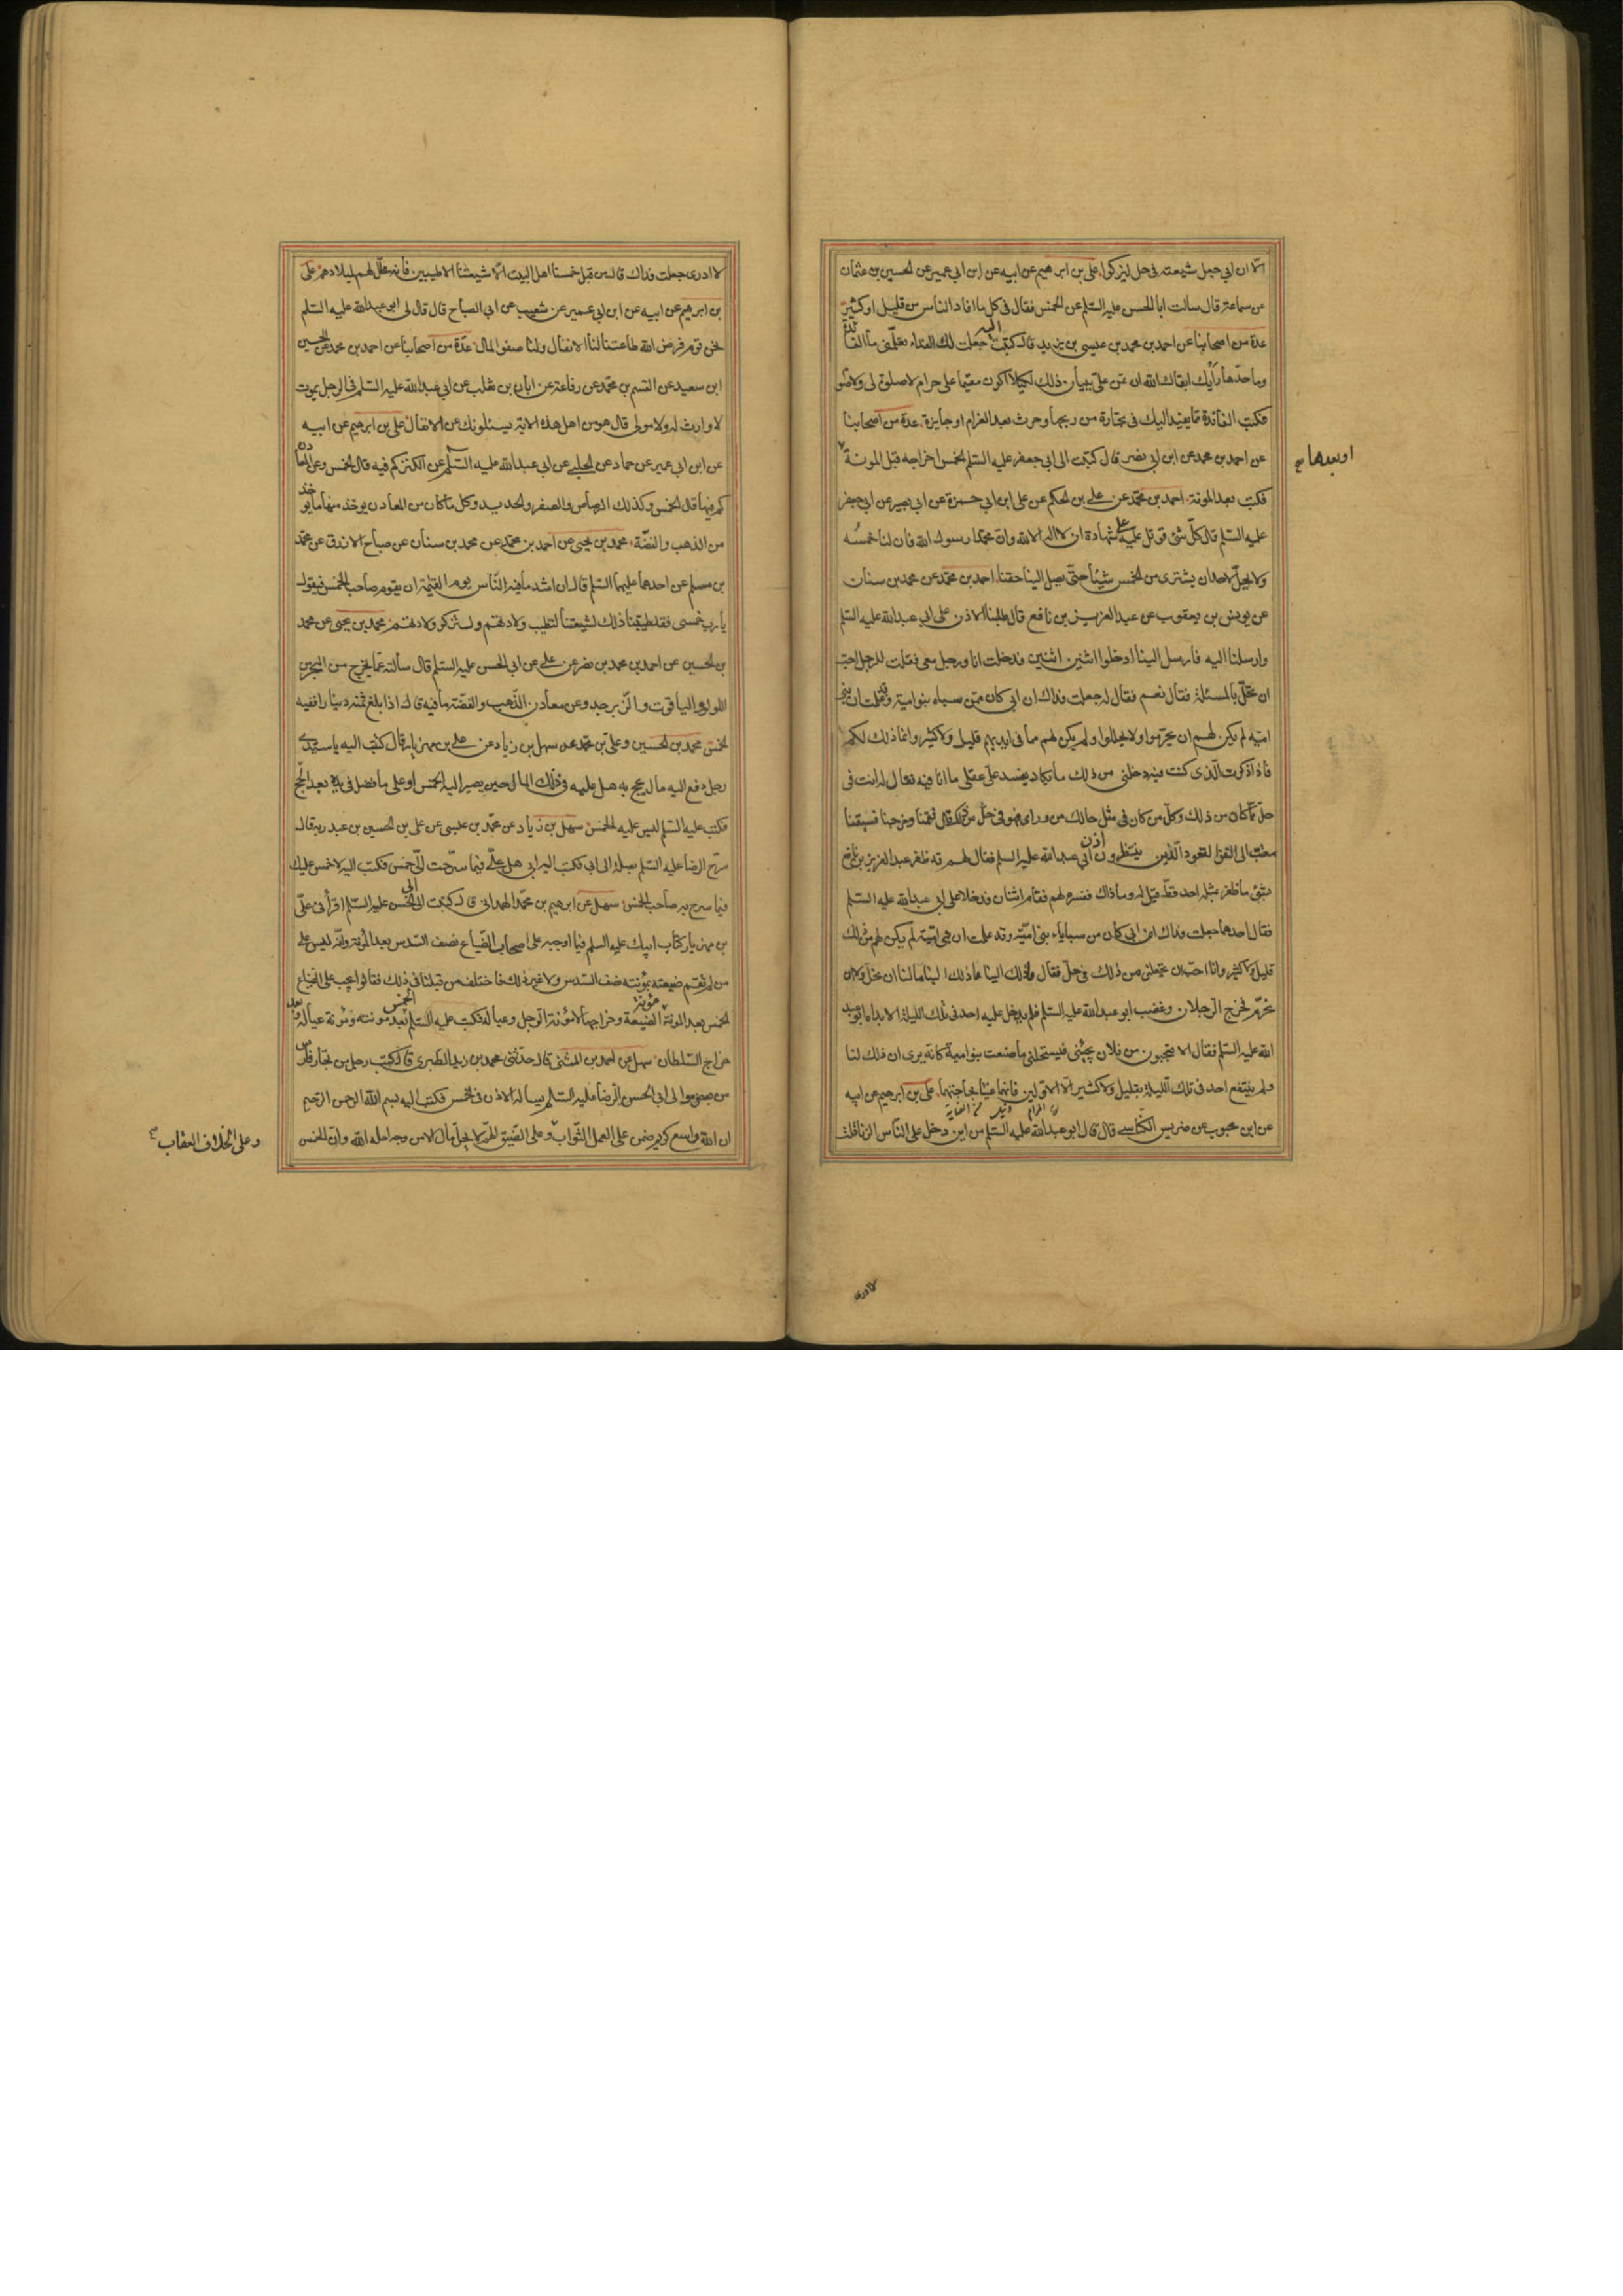 الا ان ابي جعل شيعته في حل ليزكوا علي بن ابرهيم عن ابيه عن ابن ابي عمير عن الحسين بن عثمان
عن سماعة قال سالت ابا الحسن عليه السلم عن الخمس فقال في كل ما افاد الناس من قليل او كثير
عدة من اصحابنا عن احمد بن محمد بن عيسى بن يزيد قال كتبت اليه جعلت لك الفداء تعلمني ما الفائدة
وما حدها رأيك ابقاك الله ان تمن علي ببيان ذلك لكيلا اكون مقيما على حرام لا صلوة لي ولا صوم
فكتب الفائدة مما يفيد اليك في تجارة من ربحها وحرث بعد الغرام او جايزة عدة من اصحابنا
عن احمد بن محمد عن ابن ابي نصر قال كتبت الى ابي جعفر عليه السلم الخمس اخراجه قبل المونة
او بعدها
فكتب بعد المونة احمد بن محمد عن علي بن الحكم عن علي ابن ابي حمزة عن ابي بصير عن ابي جعفر
عليه السلم قال كل شئ قوتل عليه على شهادة ان لا اله الا الله وان محمدا رسول الله فان لنا خمسه
ولا يحل لاحد ان يشترى من الخمس شيئا حتى يصل الينا حقنا احمد بن محمد عن محمد بن سنان
عن يونس بن يعقوب عن عبد العزيز بن نافع قال طلبنا الاذن على ابي عبد الله عليه السلم
وارسلنا اليه فارسل الينا ادخلوا اثنين اثنين فدخلت انا ورجل معى فقلت للرجل احب
ان تحل بالمسئلة فقال نعم فقال له جعلت فداك ان ابي كان ممن سباه بنو امية وقد علمت ان بني
امية لم يكن لهم ان يحرموا ولا يحللوا ولم يكن لهم مما في ايديهم قليل ولا كثير وانما ذلك لكم
فاذا ذكرت الذى كنت فيه دخلنى من ذلك ما يكاد يفسد على عقلى ما انا فيه فقال له انت في
حل مما كان من ذلك وكل من كان في مثل حالك من ورائى فهو في حل من ذلك قال فقمنا وخرجنا فسبقنا
معتب الى النفر القعود الذين ينتظرون اذن ابي عبد الله عليه السلم فقال لهم قد ظفر عبد العزيز بن نافع
بشئ ما ظفر بمثله احد قط قيل له وما ذاك ففسره لهم فقام اثنان فدخلا على ابي عبد الله عليه السلم
فقال احدهما جعلت فداك ان ابي كان من سبايا بنى امية وقد علمت ان بنى امية لم يكن لهم من ذلك
قليل ولا كثير وانا احب ان تجعلنى من ذلك في حل فقال وذلك الينا ما ذلك الينا ما لنا ان نحل ولا ان
نحرم فخرج الرجلان وغضب ابو عبد الله عليه السلم فلم يدخل عليه احد في تلك الليلة الا بداه ابو عبد
الله عليه السلم فقال الا تعجبون من فلان يجيئنى فيستحلنى مما صنعت بنو امية كانه يرى ان ذلك لنا
ولم ينتفع احد في تلك الليلة بقليل ولا كثير الا الاولين فانهما عنيا بحاجتهما علي بن ابرهيم عن ابيه
عن ابن محبوب عن ضريس الكناسي قال قال ابو عبد الله عليه السلم من اين دخل على الناس الزنا قلت
لا ادرى
لا ادرى جعلت فداك قال من قبل خمسنا اهل البيت الا شيعتنا الاطيبين فانه محلل لهم لميلادهم علي
بن ابرهيم عن ابيه عن ابن ابي عمير عن شعيب عن ابي الصباح قال قال لي ابو عبد الله عليه السلم
نحن قوم فرض الله طاعتنا لنا الانفال ولنا صفو المال عدة من اصحابنا عن احمد بن محمد عن الحسين
ابن سعيد عن القسم بن محمد عن رفاعة عن ابان بن تغلب عن ابي عبد الله عليه السلم في الرجل يموت
لا وارث له ولا مولى قال هو من اهل هذه الاية يسئلونك عن الانفال علي بن ابرهيم عن ابيه
عن ابن ابي عمير عن حماد عن الحلبي عن ابي عبد الله عليه السلم عن الكنز كم فيه قال الخمس وعن المعادن
كم فيها قال الخمس وكذلك الرصاص والصفر والحديد وكل ما كان من المعادن يوخذ منها ما يوخذ
من الذهب والفضة محمد بن يحيى عن احمد بن محمد عن محمد بن سنان عن صباح الازرق عن محمد
بن مسلم عن احدهما عليهما السلم قال ان اشد ما فيه الناس يوم القيمة ان يقوم صاحب الخمس فيقول
يا رب خمسى فقد طيبنا ذلك لشيعتنا لتطيب ولادتهم ولتزكو ولادتهم محمد بن يحيى عن محمد
بن الحسين عن احمد بن محمد بن نصر عن علي عن ابي الحسن عليه السلم قال سألته عما يخرج من البحر من
اللؤلؤ والياقوت والزبرجد وعن معادن الذهب والفضة ما فيه قال اذا بلغ ثمنه دينارا ففيه
الخمس محمد بن الحسين وعلي بن محمد عن سهل بن زياد عن علي بن مهزيار قال كتبت اليه يا سيدي
رجل دفع اليه مال يحج به هل عليه في ذلك المال حين يصير اليه الخمس او على ما فضل في يده بعد الحج
فكتب عليه السلم ليس عليه الخمس سهل بن زياد عن محمد بن عيسى عن علي بن الحسين بن عبد ربه قال
سرح الرضا عليه السلم بصلة الى ابي فكتب اليه ابي هل علي فيما سرحت الي خمس فكتب اليه لا خمس عليك
فيما سرح به صاحب الخمس سهل عن ابرهيم بن محمد الهمداني قال كتبت الى ابي الحسن عليه السلم اقرأنى علي
بن مهزيار كتاب ابيك عليه السلم فيما اوجبه على اصحاب الضياع نصف السدس بعد المؤنة وانه ليس على
من لم تقم ضيعته بمؤنته نصف السدس ولا غير ذلك فاختلف من قبلنا في ذلك فقالوا يجب على الضياع
الخمس بعد المونة مؤنة الضيعة وخراجها لا مؤنة الرجل وعياله فكتب عليه السلم الخمس بعد مؤنته ومؤنة عياله وبعد
خراج السلطان سهل عن احمد بن المثنى قال حدثنى محمد بن زيد الطبرى قال كتب رجل من تجار فارس
من بعض موالى ابي الحسن الرضا عليه السلم يساله الاذن في الخمس فكتب اليه بسم الله الرحمن الرحيم
ان الله واسع كريم ضمن على العمل الثواب وعلى الضيق الهم لا يحل مال الا من وجه احله الله وان الخمس
وعلى الخلاف العقاب